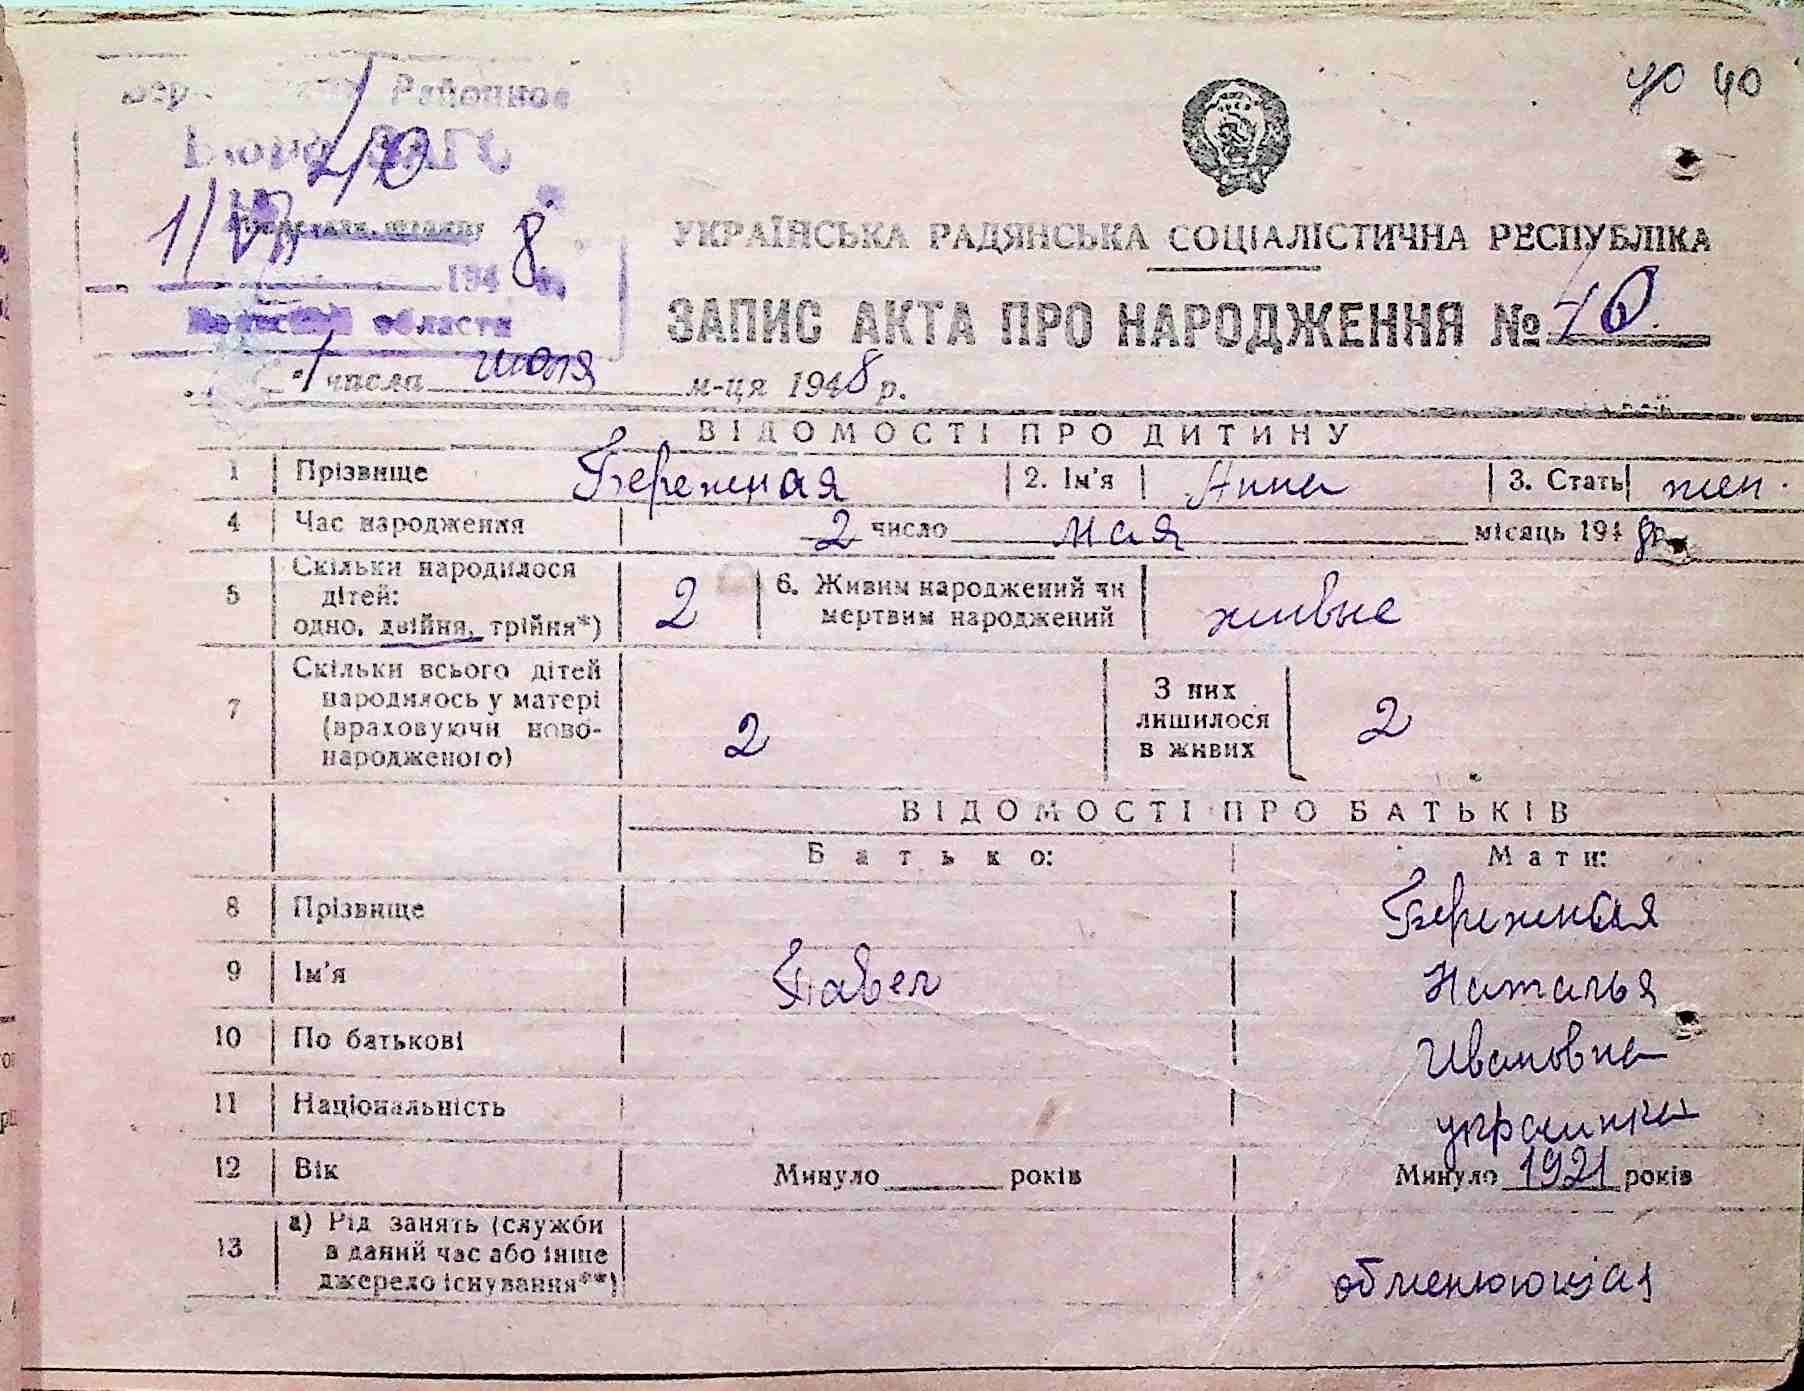 40 40
Районное
Бюро ЗАГС
40
1/VII 1948
области
УКРАЇНСЬКА РАДЯНСЬКА СОЦІАЛІСТИЧНА РЕСПУБЛІКА
ЗАПИС АКТА ПРО НАРОДЖЕННЯ № 40
1 числа июля м-ця 1948 р.
ВІДОМОСТІ ПРО ДИТИНУ
1 Прізвище Бережная 2. Ім'я Анна 3. Стать жен.
4 Час народження 2 число мая місяць 1948 р.
5 Скільки народилося дітей: одно, двійня, трійня*) 2 6. Живим народжений чи мертвим народжений живые
7 Скільки всього дітей народилось у матері (враховуючи новонародженого) 2 З них лишилося в живих 2
ВІДОМОСТІ ПРО БАТЬКІВ
Батько: Мати:
8 Прізвище Бережная
9 Ім'я Павел Наталья
10 По батькові Ивановна
11 Національність украинка
12 Вік Минуло років Минуло 1921 років
13 а) Рід занять (служби в даний час або інше джерело існування**)